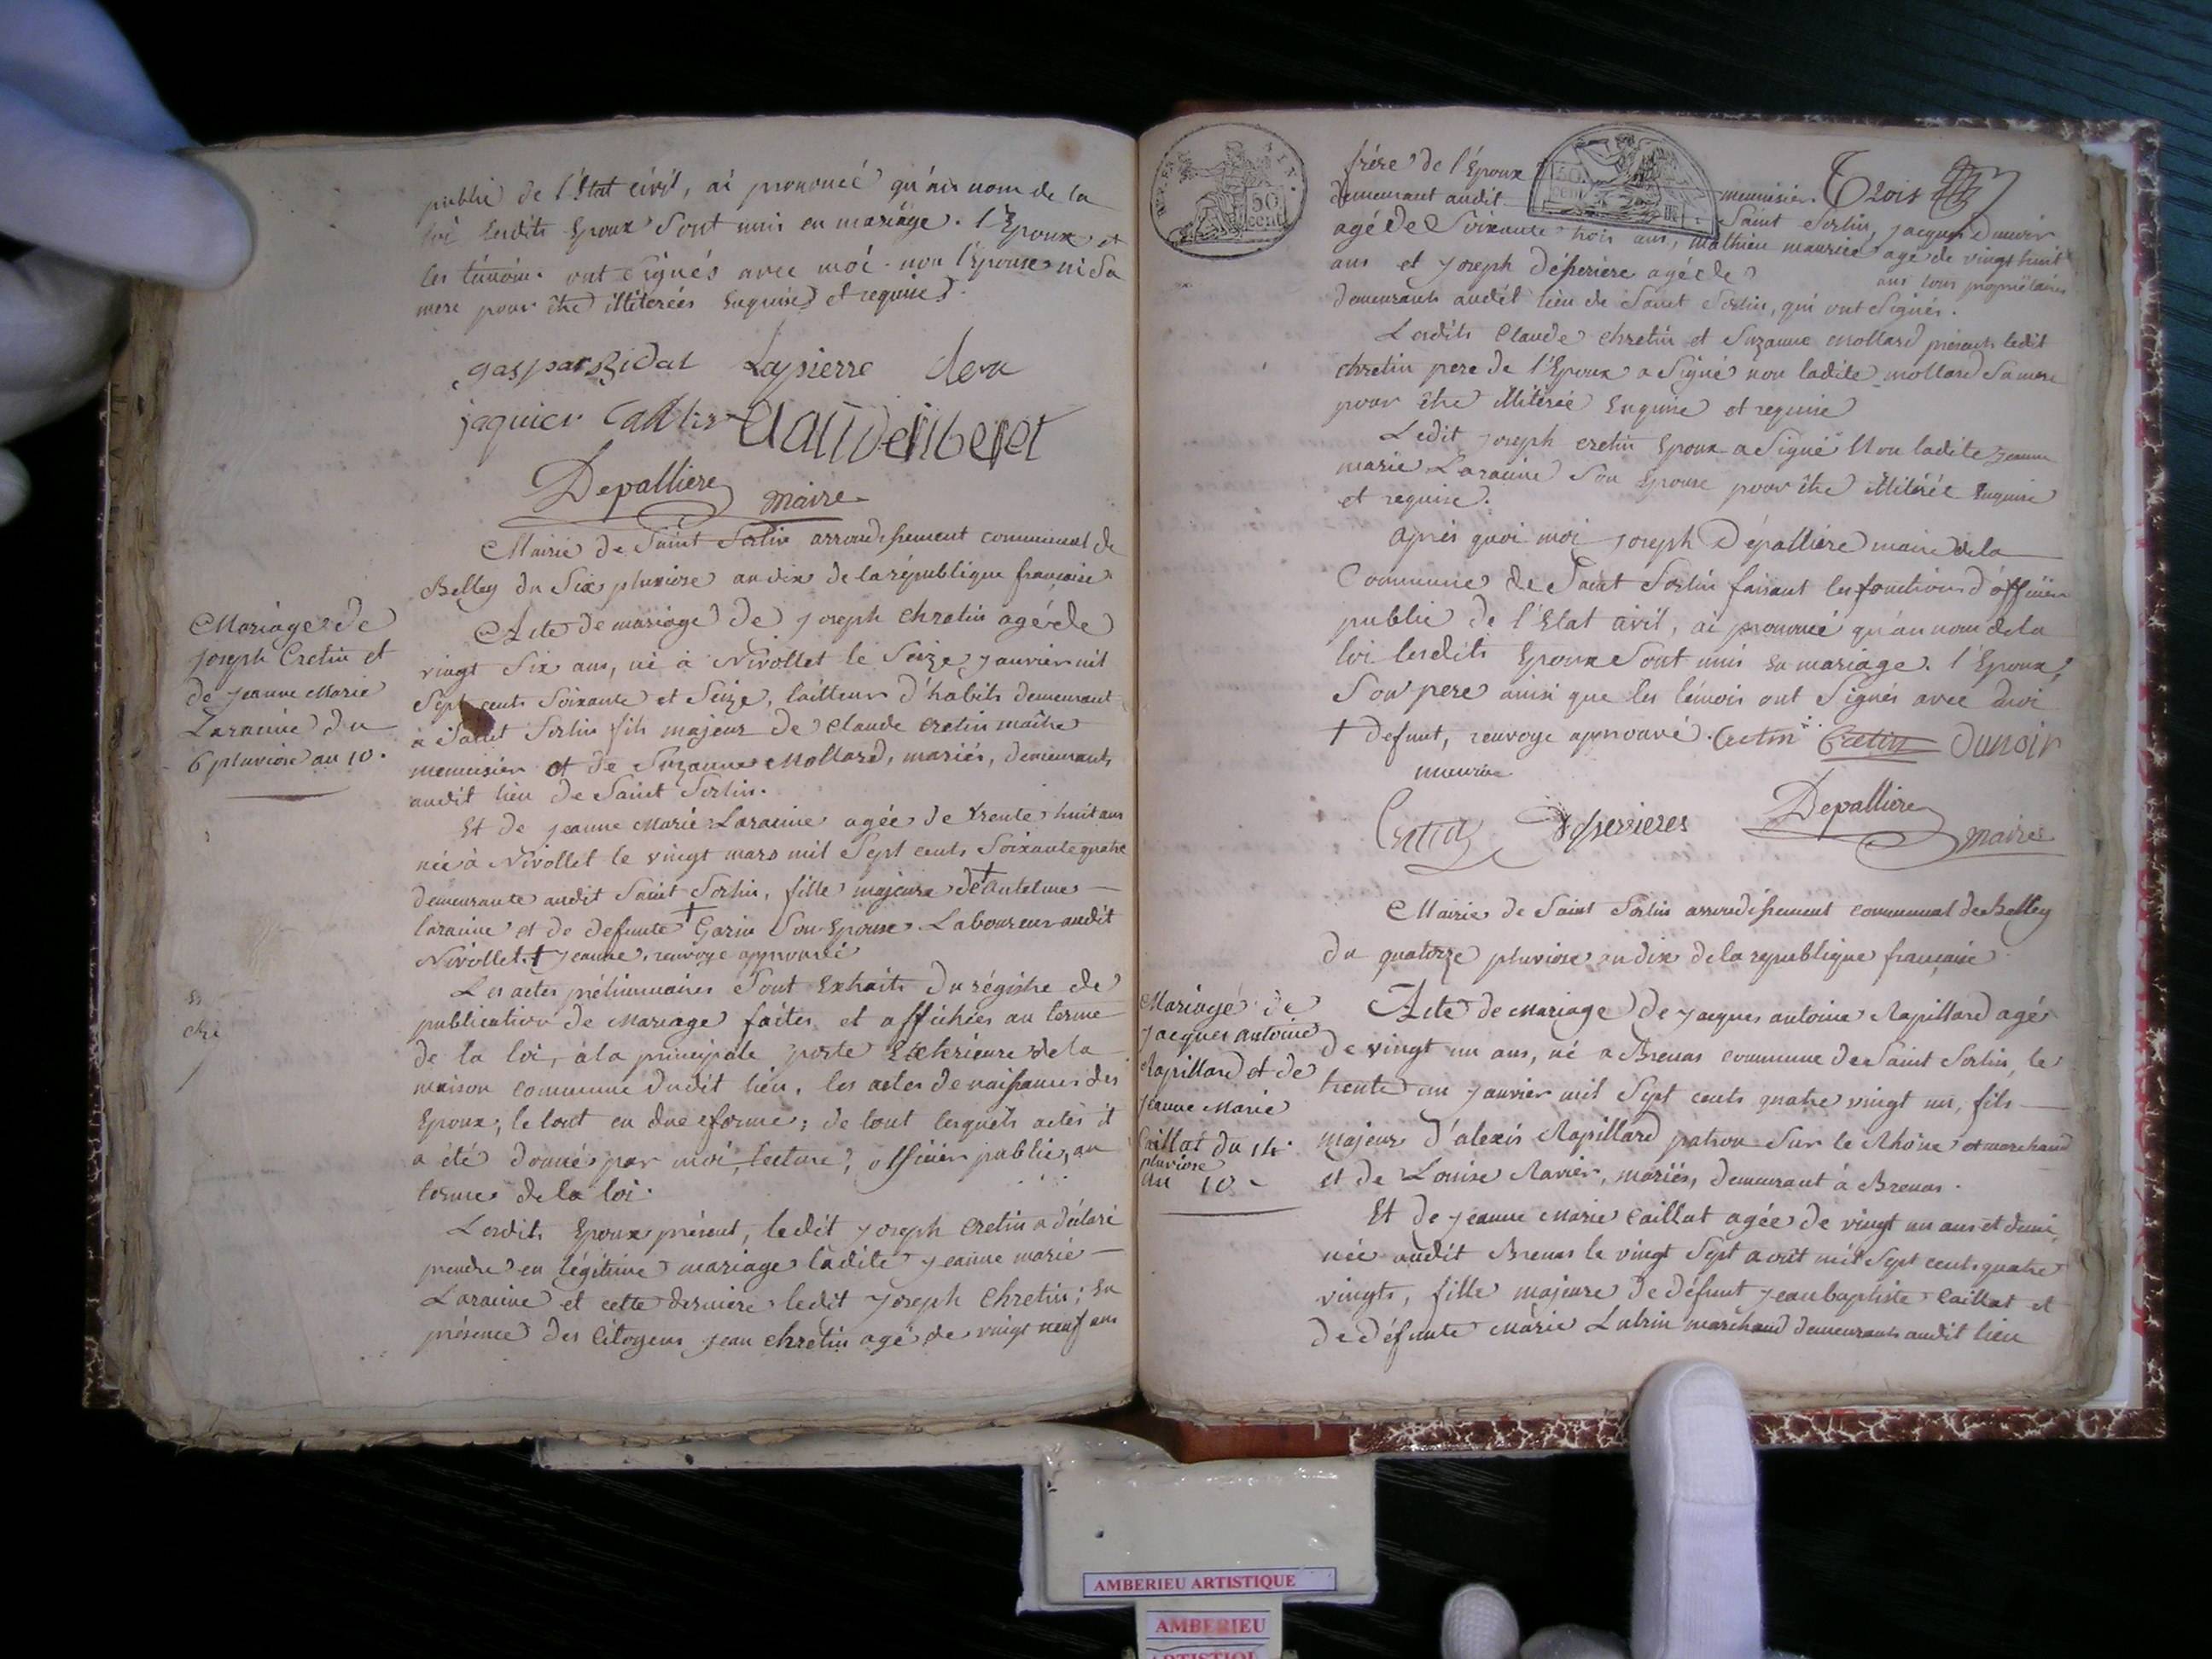 public de l'Etat civil, ai prononcé qu'au nom de la
loi lesdits Epoux sont unis en mariage. l'Epoux et
les témoins ont signés avec moi non l'Epouse ni sa
mere pour être illiterées Enquises et requises.
gaspar Bidal Lapierre
jaquier
Depalliere maire
Mairie de Saint Sorlin arrondissement communal de
Belley du Six pluviose an dix de la république française.
Mariage de
joseph Cretin et
de jeanne Marie
Laracine du
6 pluviose an 10.
Acte de mariage de joseph chretin agé de
vingt six ans, né à Nivollet le Seize janvier mil
Sept cents Soixante et Seize, tailleur d'habits demeurant
à Saint Sorlin fils majeur de claude cretin maître
menuisier et de Suzanne Mollard, mariés, demeurants
audit lieu de Saint Sorlin.
Et de jeanne Marie Laracine agée de trente huit ans
née à Nivollet le vingt mars mil Sept cents Soixante quatre
demeurante audit Saint Sorlin, fille majeure de † antelme
laracine et de defunte † Garin Son Epouse Laboureur audit
Nivollet. † jeanne, renvoye approuvé
Les actes préliminaires Sont Extraits du régistre de
publication de Mariage faites et affichées au terme
de la loi, à la principale porte Exterieure de la
maison commune dudit lieu, les actes de naissances des
Epoux, le tout en due forme; de tout lesquels actes il
a été donné par moi, lecture, officier public, au
terme de la loi.
Lesdits Epoux présent, ledit joseph cretin a déclaré
prendre en légitime mariage ladite jeanne marie
Laracine et cette derniere ledit joseph chretin; En
présence des Citoyens jean chretin agé de vingt neuf ans
REP. FRA
50 cent
frère de l'Epoux menuisier. Trois
demeurant audit Saint Sorlin, jacques Dunoir
agé de Soixante trois ans, mathieu maurice agé de vingt huit
ans et joseph Déperiere agé de ans tous propriétaires
demeurants audit lieu de Saint Sorlin, qui ont Signés.
Lesdits Claude chretin et Suzanne mollard présents ledit
chretin pere de l'Epoux a Signé non ladite mollard Sa mere
pour être illiterée Enquise et requise
Ledit joseph cretin Epoux a Signé Non ladite jeanne
marie Laracine Son Epouse pour être illiterée Enquise
et requise.
Après quoi moi joseph Dépalliere maire de la
Commune de Saint Sorlin faisant les fonctions d'officier
public de l'Etat civil, ai prononcé qu'au nom de la
loi lesdits Epoux Sont unis en mariage. l'Epoux,
Son pere ainsi que les témois ont Signés avec moi
† defunt, renvoye approuvé. Cretin Cretin Dunoir
maurice
Cretin Desperrieres Depalliere maire
Mairie de Saint Sorlin arrondissement communal de Belley
du quatorze pluviose an dix de la republique francaise
Mariage de
jacques antoine
Rapillard et de
jeanne Marie
Caillat du 14.
pluviose
an 10
Acte de Mariage de jacques antoine Rapillard agé
de vingt un ans, né a Brenas commune de Saint Sorlin, le
trente un janvier mil Sept cents quatre vingt un, fils
majeur d'alexis Rapillard patron Sur le Rhône et marchand
et de Louise Ravier, mariés, demeurant à Brenas.
Et de jeanne Marie Caillat agée de vingt un ans et demi
née audit Brenas le vingt Sept aout mil Sept cents quatre
vingts, fille majeure de défunt jean baptiste Caillat et
de défunte Marie Lubrin marchand demeurants audit lieu
AMBERIEU ARTISTIQUE
AMBERIEU
ARTISTIQUE